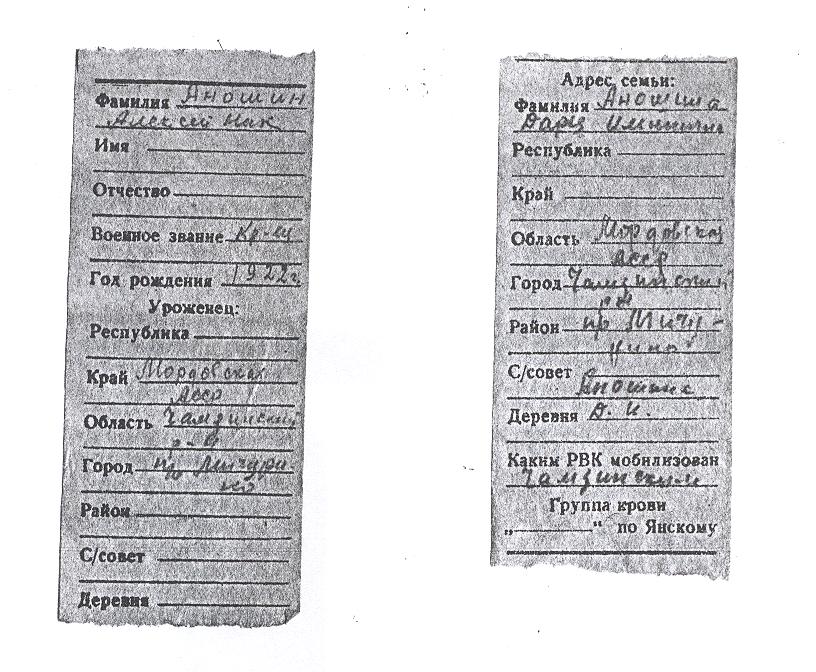 Фамилия Аношин
Алексей Ник
Имя
Отчество
Военное звание Кр-ец
Год рождения 1922 г.
Уроженец:
Республика
Край Мордовская
АССР
Область Чамзинский
р-н
Город пр Мичури-
но
Район
С/совет
Деревня
Адрес семьи:
Фамилия Аношина
Дарья
Республика
Край
Область Мордовская
АССР
Город Чамзинский
р-н
Район пр Мичу-
рино
С/совет
Аношина
Деревня Д. И.
Каким РВК мобилизован
Чамзинским
Группа крови
„ “ по Янскому